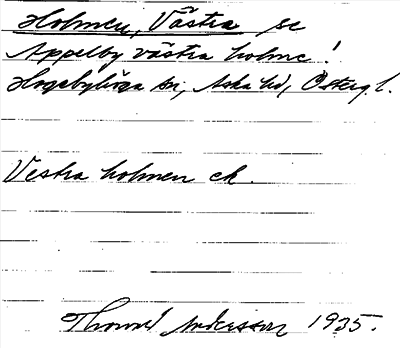 Holmen, Västra se
Appelby västra holme!
Hagebyhöga sn, Aska hd, Östergl.
Vestra holmen ek.
Thorvald Andersson 1935.